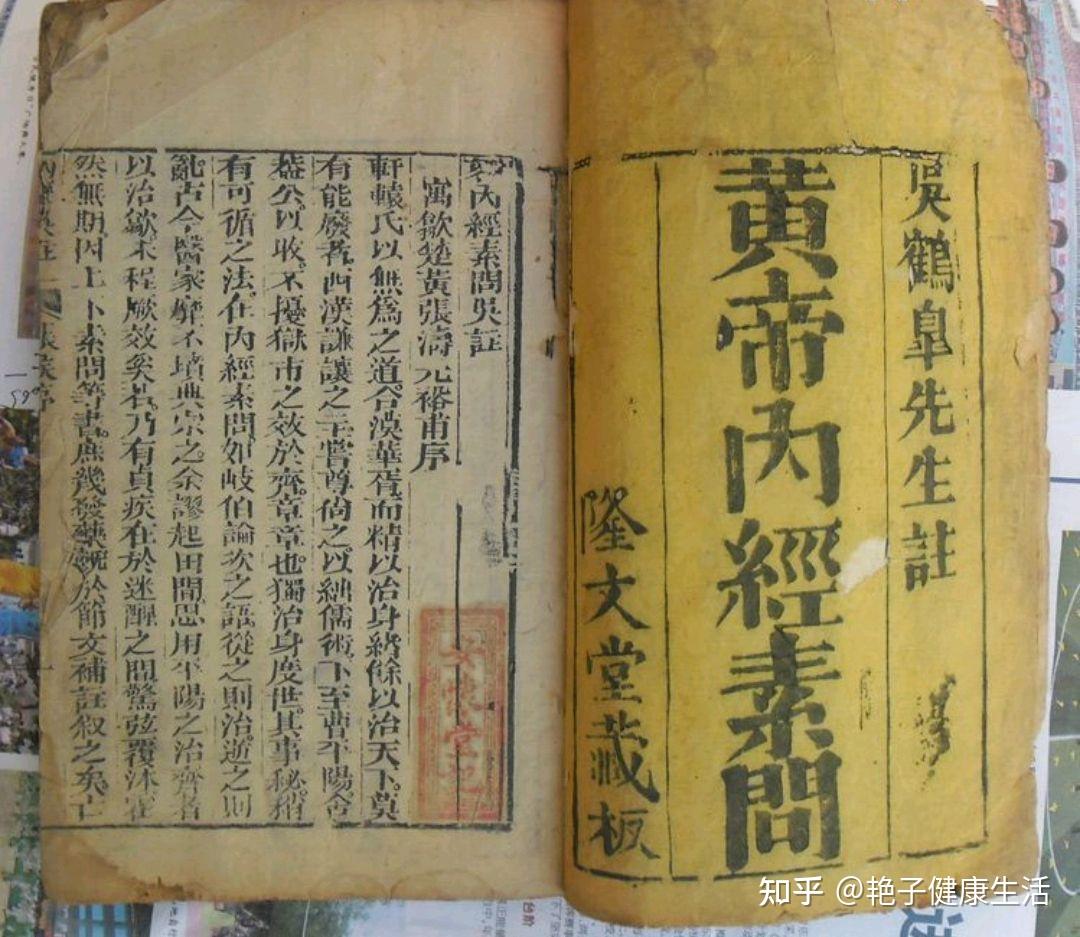 吳鶴皐先生註
黃帝內經素問
隆文堂藏板
內經素問吳註
寓歙楚黃張濤元裕甫序
軒轅氏以無為之道合漠華胥而精以治身緒餘以治天下莫
有能廢者西漢謙讓之主嘗尊尚之以絀儒術下至曹平陽舍
葢公以收不擾獄市之效於齊章章也獨治身度世其事秘稍
有可循之法在內經素問如岐伯論次之語從之則治逆之則
亂古今醫家靡不墳典宗之余謬起田間思用平陽之治齊者
以治歙未程厥效矣若乃有貞疾在於迷醒之間驚弦覆沐霍
然無期因上下素問等書庶幾發藥輒於節文補註叙之矣亡
內經吳註 張序
知乎 @艳子健康生活